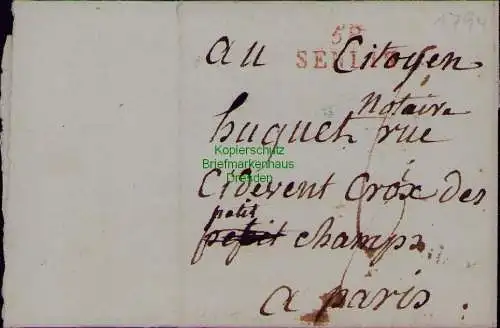 1794
59
SENLIS
au Citoyen
Notaire
huguet rue
Cidevent Crox des
petit
petit champs
a paris.
Kopierschutz
Briefmarkenhaus
Dresden